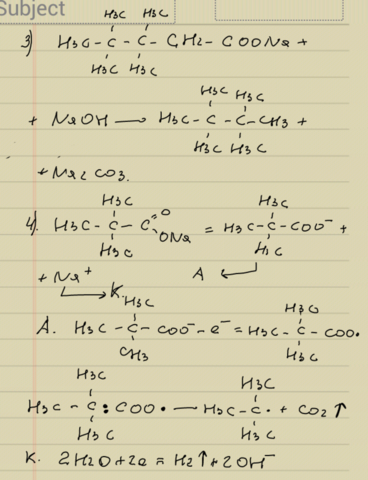 Subject
H₃C H₃C
3) H₃C - C - C - CH₂ - COONa +
H₃C H₃C
H₃C H₃C
+ NaOH — H₃C - C - C - CH₃ +
H₃C H₃C
+ Na₂CO₃.
H₃C H₃C
4). H₃C - C - C =O ONa = H₃C - C - COO⁻ +
H₃C H₃C
+ Na⁺ A
K.
H₃C H₃C
A. H₃C - C - COO⁻ - e⁻ = H₃C - C - COO•
CH₃ H₃C
H₃C H₃C
H₃C - C : COO• — H₃C - C• + CO₂↑
H₃C H₃C
K. 2H₂O + 2e = H₂↑ + 2OH⁻